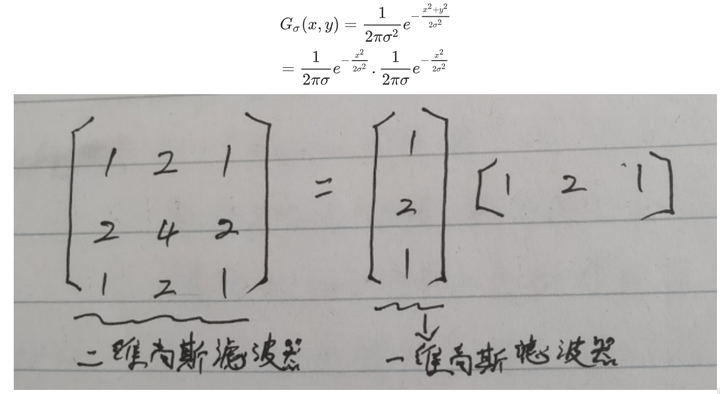 G_σ(x, y) = \frac{1}{2πσ^2} e^{-\frac{x^2+y^2}{2σ^2}}
= \frac{1}{2πσ} e^{-\frac{x^2}{2σ^2}} . \frac{1}{2πσ} e^{-\frac{x^2}{2σ^2}}
[1 2 1; 2 4 2; 1 2 1] = [1; 2; 1] [1 2 1]
二维高斯滤波器 一维高斯滤波器